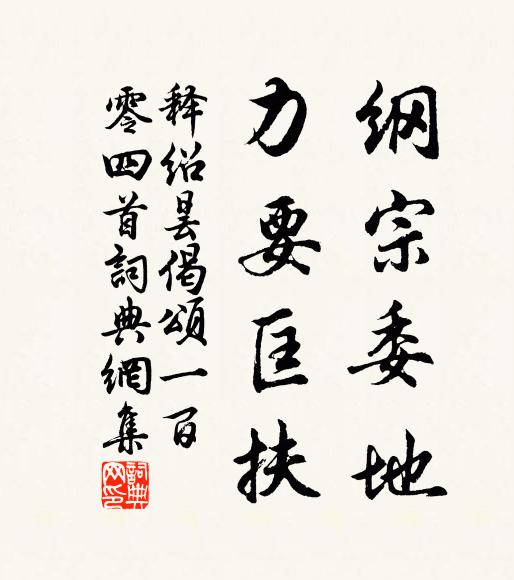 纲宗委地
力要匡扶
释绍昙偈頌一百
零四首詞典網集
詞典网印